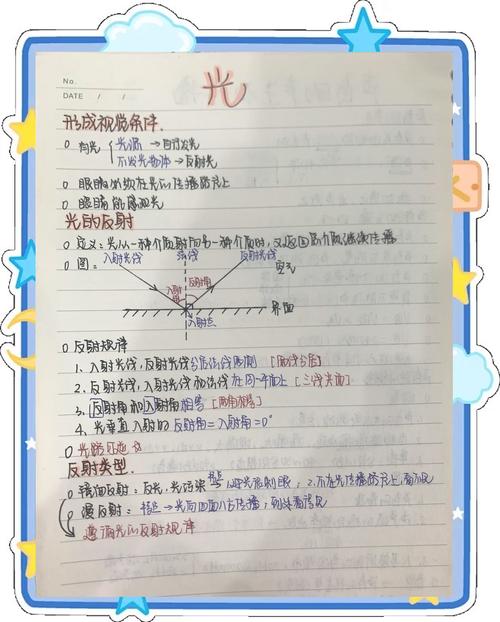 No.
DATE / /
光
形成视觉条件.
有光 光源 → 自行发光
不发光物体 → 反射光
眼睛必须在光的传播路径上
眼睛能感知光
光的反射
定义: 光从一种介质射向另一种介质时, 又返回原介质继续传播
图: 入射光线 法线 反射光线 空气
入射角 反射角
界面
入射点
反射规律
1、入射光线, 反射光线分居法线两侧 [两线分居]
2、反射光线, 入射光线和法线在同一平面上 [三线共面]
3、反射角和入射角相等 [两角相等]
4、光垂直入射时 反射角=入射角=0°
光路可逆
反射类型
镜面反射: 反光, 光污染 特点 → 1. 光滑刺眼; 2. 不在光传播路上, 看不见
漫反射: 特点 → 光向四面八方传播, 到处看得见
遵循光的反射规律